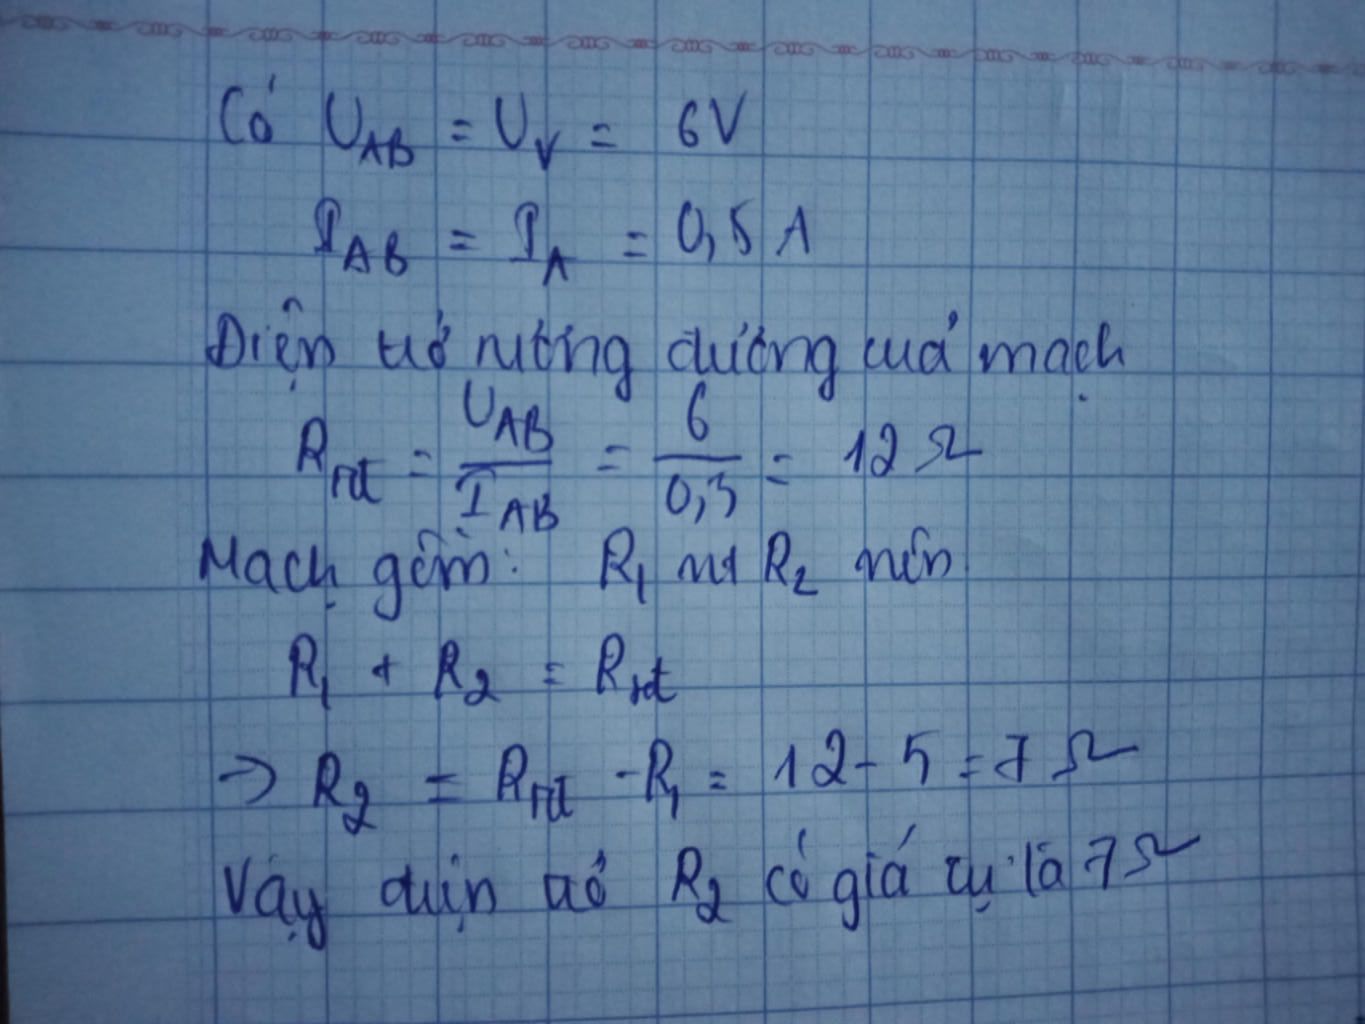 Có U_AB = U_V = 6V
I_AB = I_A = 0,5 A
Điện trở tương đương của mạch
R_tđ = U_AB / I_AB = 6 / 0,5 = 12 Ω
Mạch gồm: R_1 nt R_2 nên
R_1 + R_2 = R_tđ
→ R_2 = R_tđ - R_1 = 12 - 5 = 7 Ω
Vậy điện trở R_2 có giá trị là 7Ω